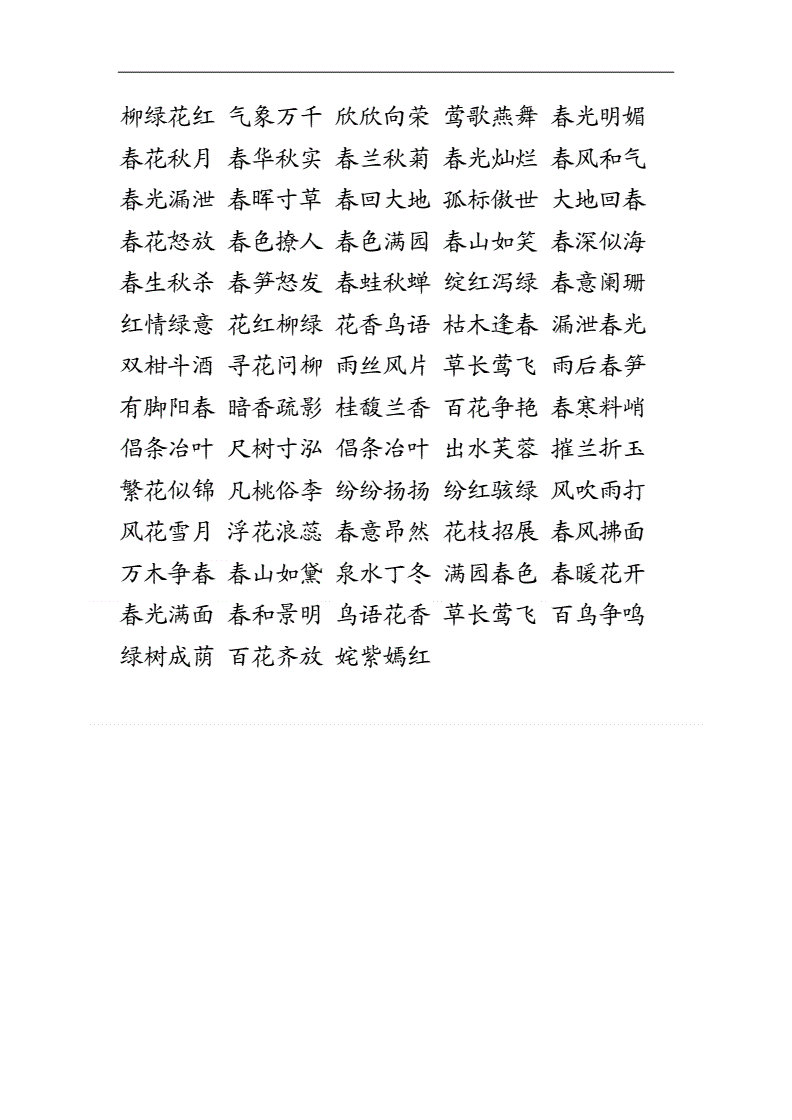 柳绿花红 气象万千 欣欣向荣 莺歌燕舞 春光明媚
春花秋月 春华秋实 春兰秋菊 春光灿烂 春风和气
春光漏泄 春晖寸草 春回大地 孤标傲世 大地回春
春花怒放 春色撩人 春色满园 春山如笑 春深似海
春生秋杀 春笋怒发 春蛙秋蝉 绽红泻绿 春意阑珊
红情绿意 花红柳绿 花香鸟语 枯木逢春 漏泄春光
双柑斗酒 寻花问柳 雨丝风片 草长莺飞 雨后春笋
有脚阳春 暗香疏影 桂馥兰香 百花争艳 春寒料峭
倡条冶叶 尺树寸泓 倡条冶叶 出水芙蓉 摧兰折玉
繁花似锦 凡桃俗李 纷纷扬扬 纷红骇绿 风吹雨打
风花雪月 浮花浪蕊 春意昂然 花枝招展 春风拂面
万木争春 春山如黛 泉水丁冬 满园春色 春暖花开
春光满面 春和景明 鸟语花香 草长莺飞 百鸟争鸣
绿树成荫 百花齐放 姹紫嫣红